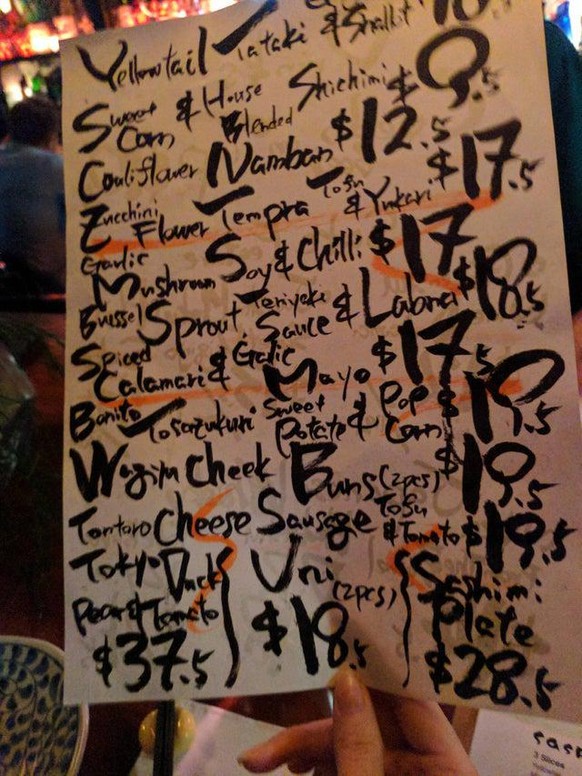 Yellowtail Tataki & Shallot
Sweet Corn & House Blended Shichimi $9.5
Couliflower Namban $12.5
Zucchini Flower Tempra Tofu & Yukari $17.5
Garlic Mushroom Soy & Chilli $17
Brussel Sprout Teriyaki Sauce & Labna $18.5
Spiced Calamari & Galic Mayo $17.5
Bonito Tosazukuri Sweet Potate & Pop Corn $19.5
Wagyu Cheek Buns (2pcs) $19.5
Tontoro Cheese Sausage Tofu & Tomato $19.5
Tokyo Duck
Pear & Tomato
$37.5
Uni
(2pcs)
$18.5
Sashimi
Plate
$28.5
3 Slices